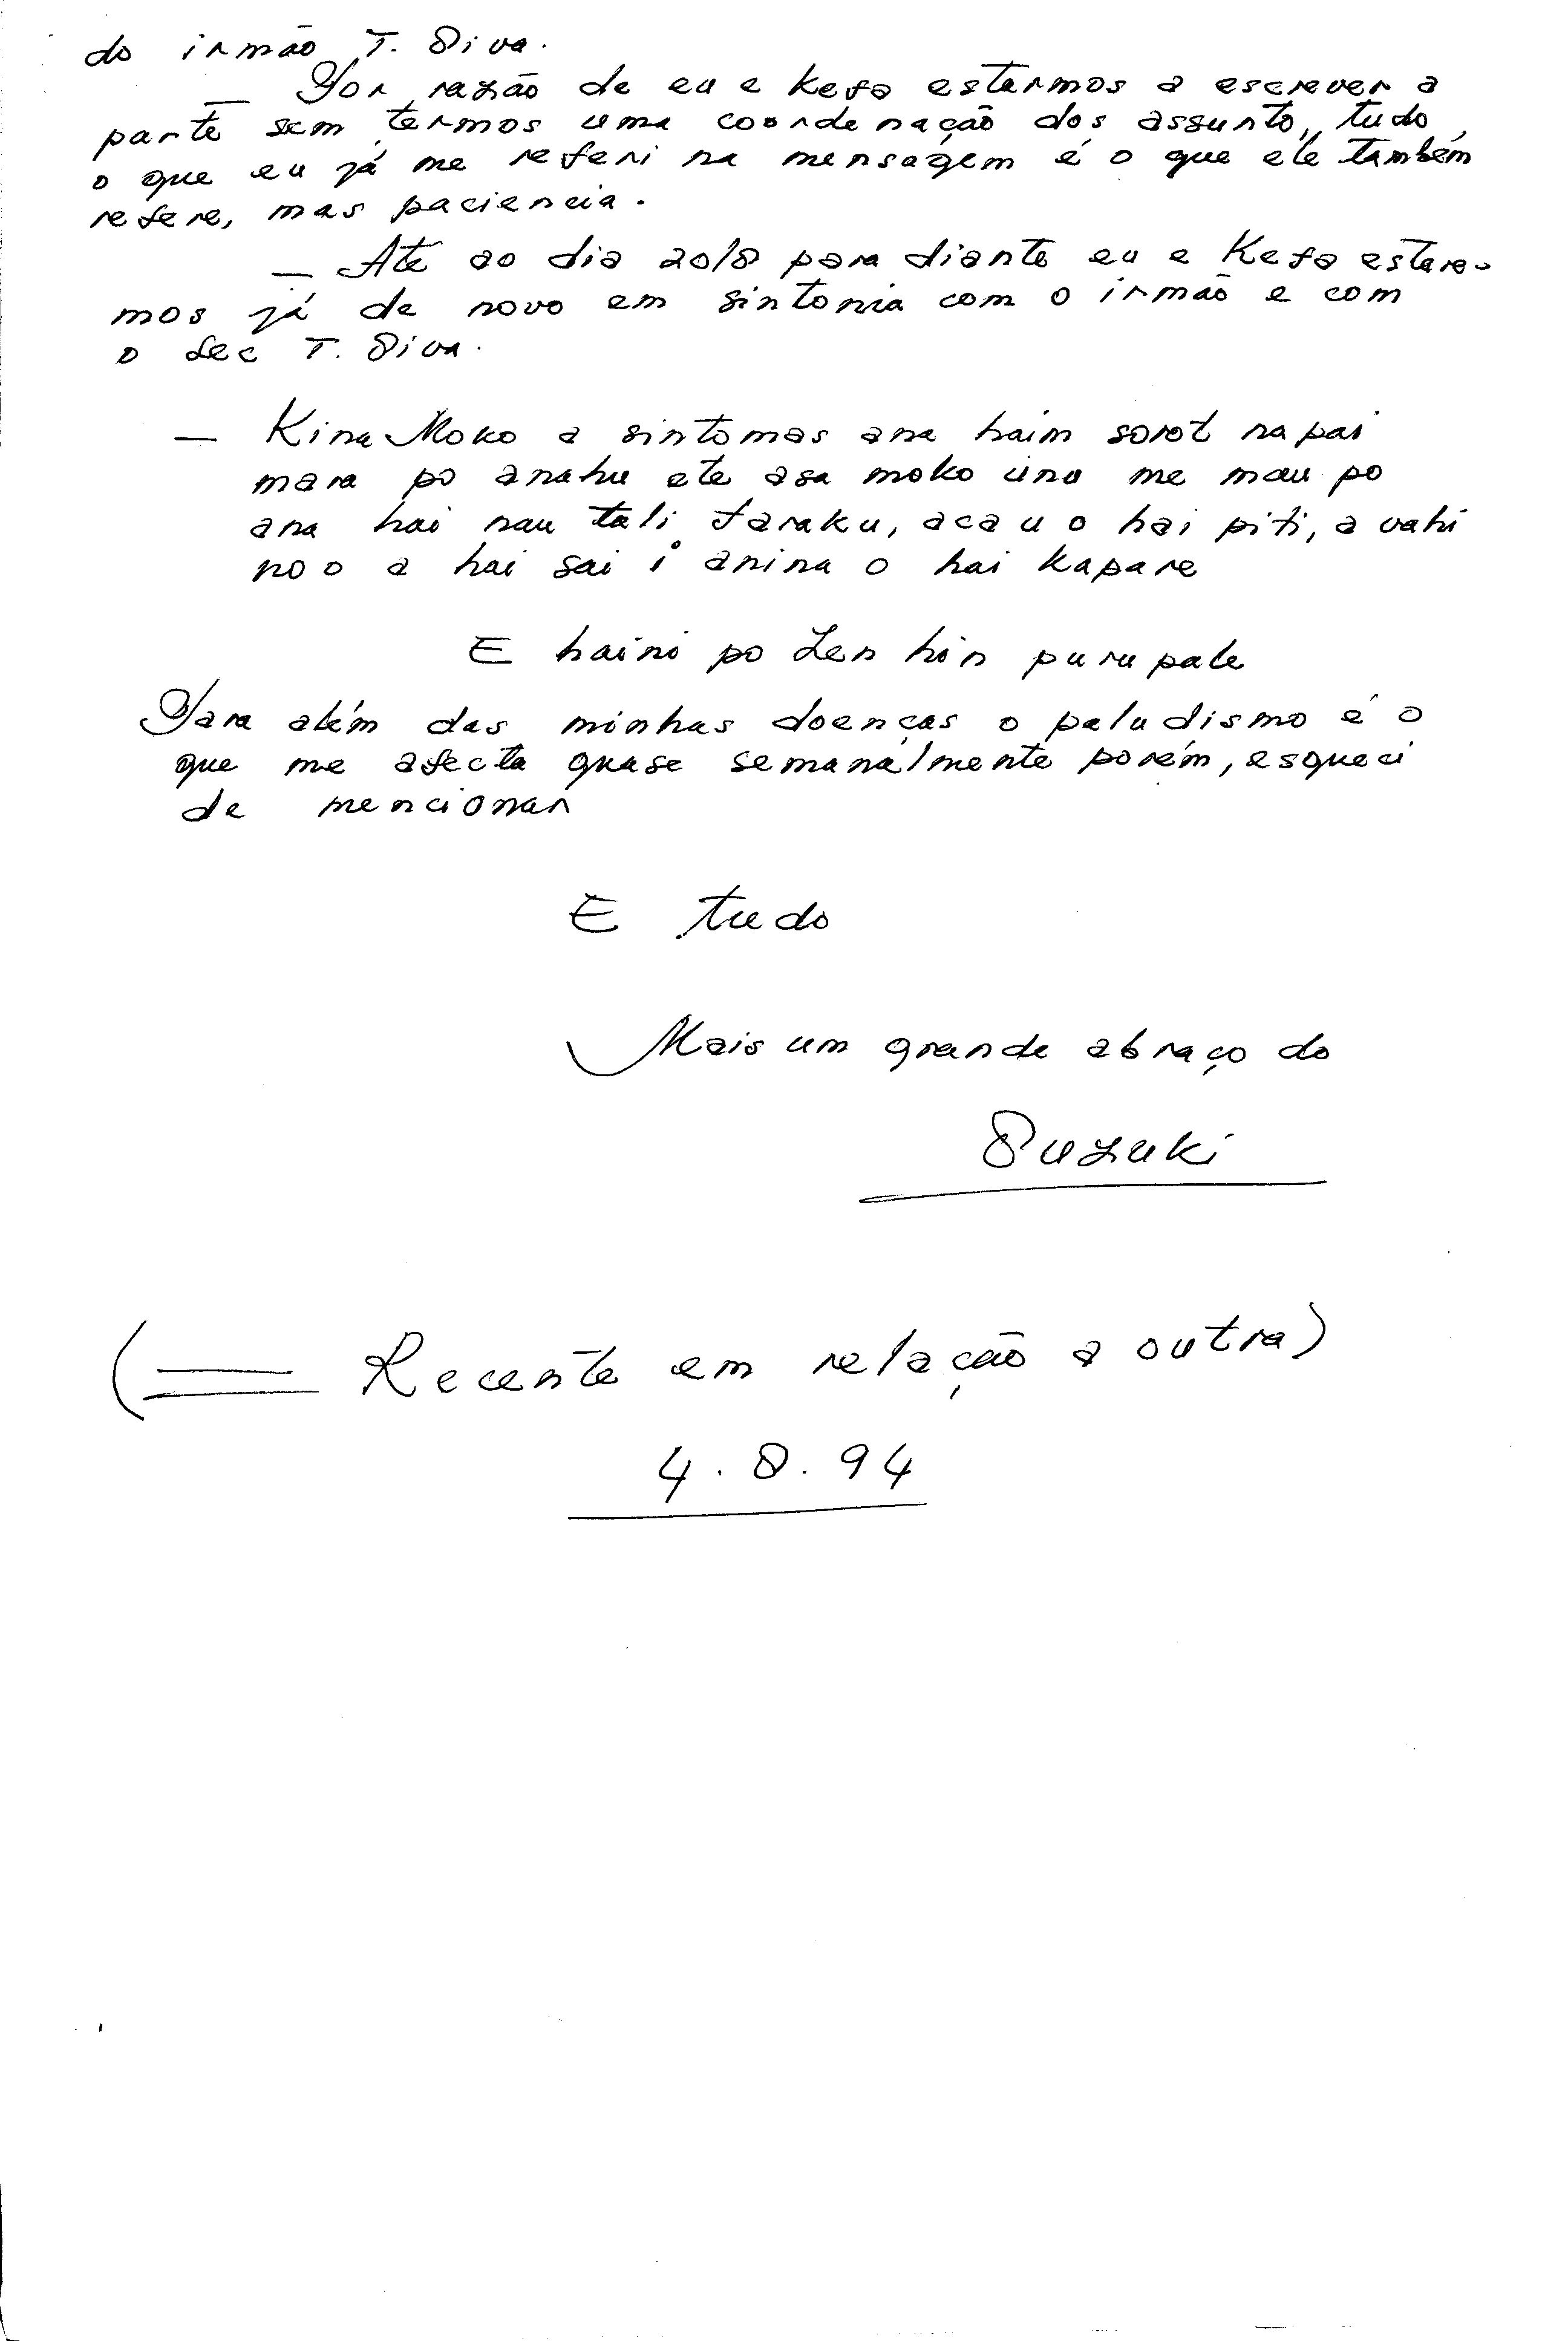 do irmão T. Siva.
— Por razão de eu e Kefa estarmos a escrever a
parte sem termos uma coordenação dos assunto, tudo
o que eu já me referi na mensagem é o que ele também
refere, mas paciencia.
— Até ao dia 20/8 para diante eu e Kefa estare-
mos já de novo em sintonia com o irmão e com
o Sec T. Siva.
— Kina Moko a sintomas ana haim sorot na pai
mara po anahu ete asa moko una me mau po
ana hai nau tali faraku, aca u o hai piti, a vahi
no o a hai sai i anina o hai kapare
E haini po Len hin purupale
Para além das minhas doenças o paludismo é o
que me afecta quase semanalmente porém, esqueci
de mencionar
E tudo
Mais um grande abraço do
Suzuki
(= Recente em relação a outra)
4.8.94